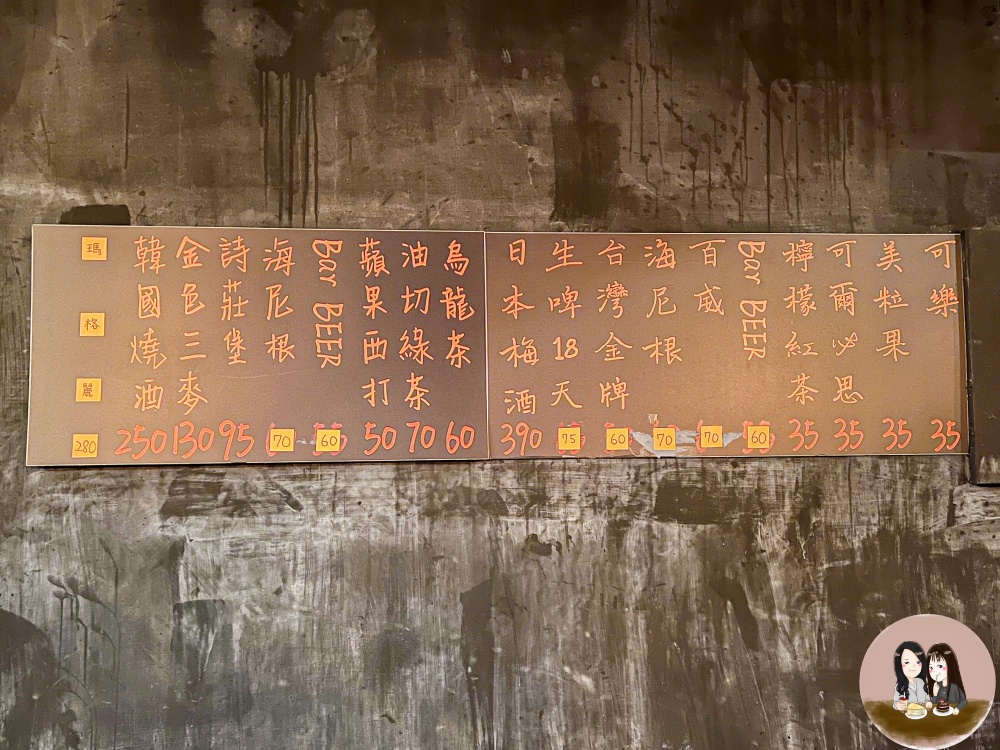 可樂 35
美粒果 35
可爾必思 35
檸檬紅茶 35
Bar BEER 60
百威 70
海尼根 70
台灣金牌 60
生啤18天 75
日本梅酒 390
烏龍茶 60
油切綠茶 70
蘋果西打 50
Bar BEER 60
海尼根 70
詩莊堡 95
金色三麥 130
韓國燒酒 250
瑪格麗 280